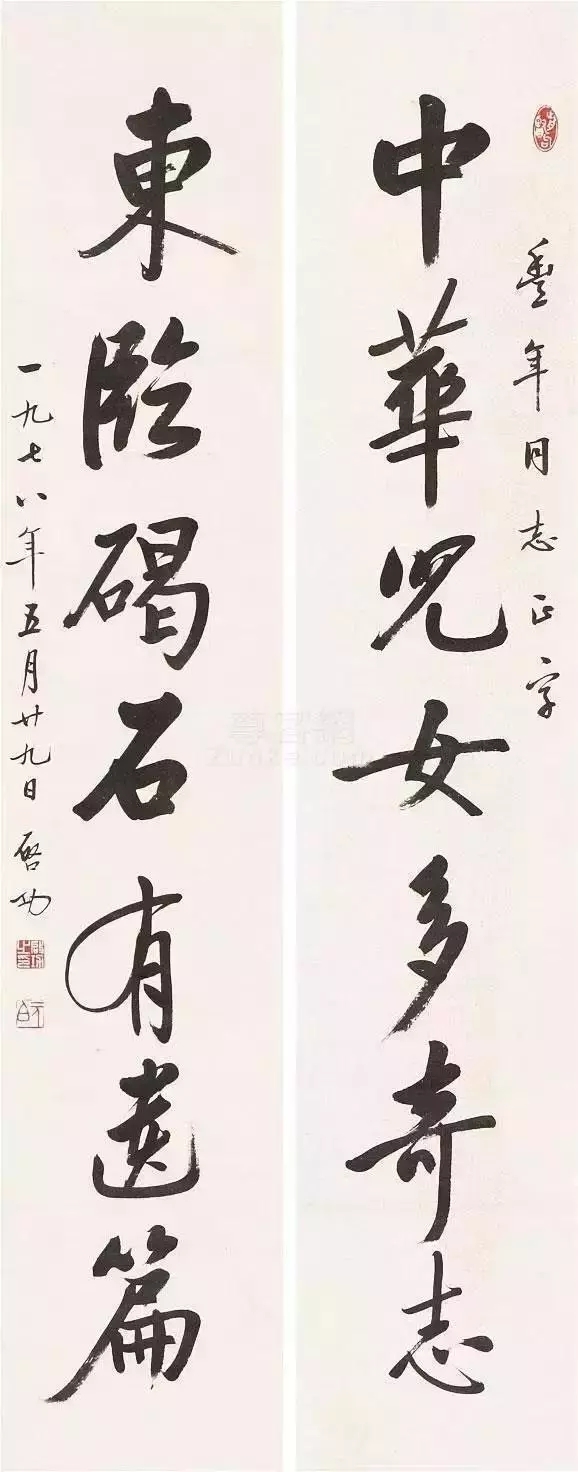 豐年同志正字
中華兒女多奇志
東臨碣石有遺篇
一九七八年五月廿九日 啓功
元白
尊客網